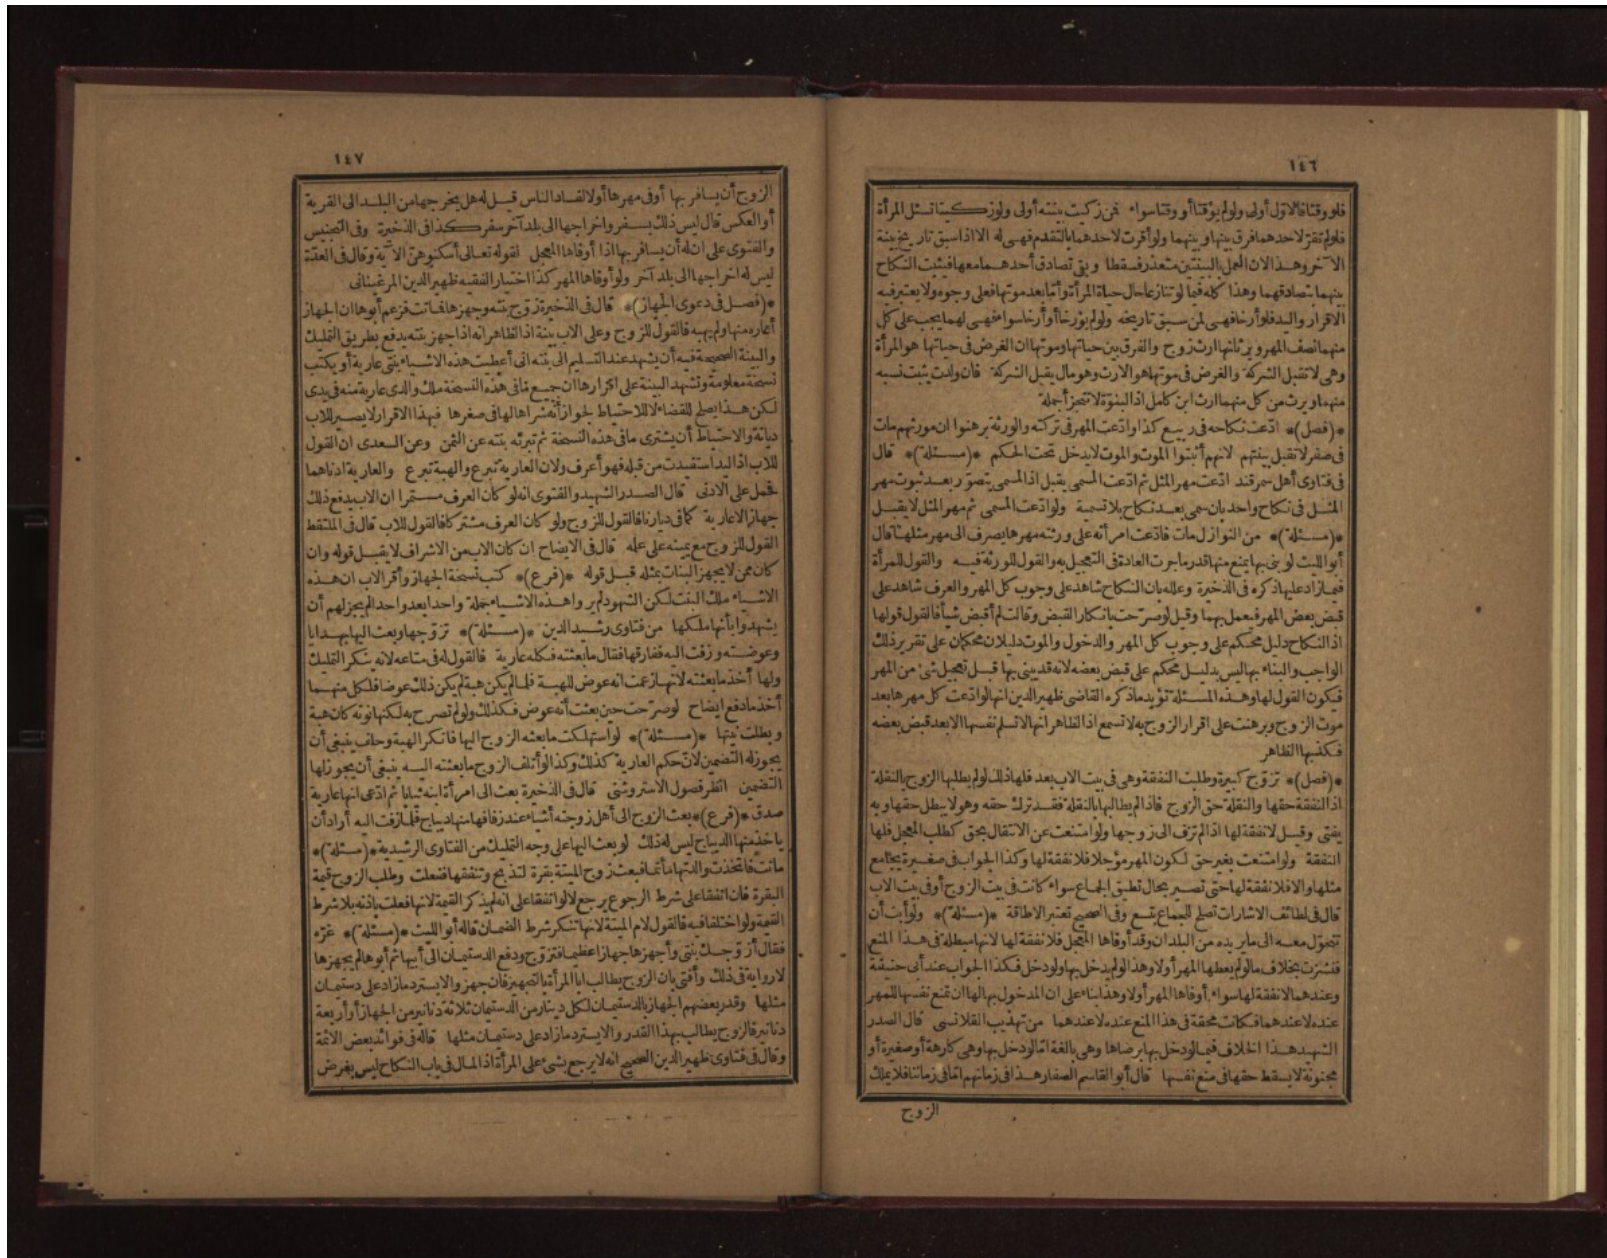 ١٤٦
فلو وقتا فالاول أولى ولو لم يؤقتا أو وقتا سواء فمن زكيت بينته أولى ولو زكيتا تسئل المرأة
فلو لم تقر لاحدهما فرق بينها وبينهما ولو أقرت لاحدهما بالتقدم فهى له الا اذا سبق تاريخ بينة
الآخر وهذا لان العمل بالبينتين متعذر فسقطا وبقى تصادق أحدهما معها فيثبت النكاح
بينهما بتصادقهما وهذا كله فيما لو تنازعا حال حياة المرأة وأما بعد موتها فعلى وجوه ولا يعتبر فيه
الاقرار واليد فلو أرخا فهى لمن سبق تاريخه ولو لم يؤرخا أو أرخا سواء فهى لهما يجب على كل
منهما نصف المهر ويرثانها ارث زوج والفرق بين حياتها وموتها ان الغرض فى حياتها هو المرأة
وهى لا تقبل الشركة والغرض فى موتها هو الارث وهو مال يقبل الشركة فان ولدت يثبت نسبه
منهما ويرث من كل منهما ارث ابن كامل اذ البنوة لا تتجزأ جملة
*(فصل)* ادعت نكاحه فى ربيع كذا وادعت المهر فى تركته والورثة برهنوا ان مورثهم مات
فى صفر لا تقبل بينتهم لانهم أثبتوا الموت والموت لا يدخل تحت الحكم *(مسئلة)* قال
فى فتاوى أهل سمرقند ادعت مهر المثل ثم ادعت المسمى يقبل اذ المسمى يتصور بعد ثبوت مهر
المثل فى نكاح واحد بان سمى بعد نكاح بلا تسمية ولو ادعت المسمى ثم مهر المثل لا يقبل
*(مسئلة)* من النوازل مات فادعت امرأته على ورثته مهرها يصرف الى مهر مثلها قال
أبو الليث لو بنى بها يمنع منها قدر ما جرت العادة فى التعجيل به والقول للورثة فيه والقول للمرأة
فيما زاد عليها ذكره فى الذخيرة وعلله بان النكاح شاهد على وجوب كل المهر والعرف شاهد على
قبض بعض المهر فيعمل بهما وقيل لو صرحت بانكار القبض وقالت لم أقبض شيأ فالقول قولها
اذ النكاح دليل محكم على وجوب كل المهر والدخول والموت دليلان محكمان على تقرير ذلك
الواجب والبناء بها ليس بدليل محكم على قبض بعضه لانه قد يبنى بها قبل تعجيل شئ من المهر
فيكون القول لها وهذه المسئلة تؤيد ما ذكره القاضى ظهير الدين انها لو ادعت كل مهرها بعد
موت الزوج وبرهنت على اقرار الزوج به لا تسمع اذ الظاهر انها لا تسلم نفسها الا بعد قبض بعضه
فكذبها الظاهر
*(فصل)* تزوج كبيرة وطلبت النفقة وهى فى بيت الاب بعد فلها ذلك لو لم يطلبها الزوج بالنقلة
اذ النفقة حقها والنقلة حق الزوج فاذا لم يطالبها بالنقلة فقد ترك حقه وهو لا يبطل حقها وبه
يفتى وقيل لا نفقة لها اذا لم تزف الى زوجها ولو امتنعت عن الانتقال بحق كطلب المعجل فلها
النفقة ولو امتنعت بغير حق لكون المهر مؤجلا فلا نفقة لها وكذا الجواب فى صغيرة يجامع
مثلها والا فلا نفقة لها حتى تصير بحال تطيق الجماع سواء كانت فى بيت الزوج أو فى بيت الاب
قال فى لطائف الاشارات تصلح للجماع بتسع وفى الصحيح تعتبر الاطاقة *(مسئلة)* ولو أبت أن
تتحول معه الى ما يريده من البلدان وقد أوفاها المعجل فلا نفقة لها لانها مبطلة فى هذا المنع
فنشزت بخلاف ما لو لم يعطها المهر أولا وهذا لو لم يدخل بها ولو دخل فكذا الجواب عند أبى حنيفة
وعندهما لا نفقة لها سواء أوفاها المهر أولا وهذا بناء على ان المدخول بها لها ان تمنع نفسها للمهر
عنده لا عندهما فكانت محقة فى هذا المنع عنده لا عندهما من تهذيب القلانسى قال الصدر
الشهيد هذا الخلاف فيما لو دخل بها برضاها وهى بالغة اما لو دخل بها وهى كارهة أو صغيرة أو
مجنونة لا يسقط حقها فى منع نفسها قال أبو القاسم الصفار هذا فى زمانهم اما فى زماننا فلا يملك
الزوج
١٤٧
الزوج أن يسافر بها أوفى مهرها أولا لفساد الناس قيل له هل يخرجها من البلد الى القرية
أو العكس قال ليس ذلك بسفر واخراجها الى بلد آخر سفر كذا فى الذخيرة وفى التجنيس
والفتوى على ان له أن يسافر بها اذا أوفاها المعجل لقوله تعالى أسكنوهن الآية وقال فى العدة
ليس له اخراجها الى بلد آخر ولو أوفاها المهر كذا اختيار الفقيه ظهير الدين المرغينانى
*(فصل فى دعوى الجهاز)* قال فى الذخيرة زوج بنته وجهزها فماتت فزعم أبوها ان الجهاز
أعاره منها ولم يهبه فالقول للزوج وعلى الاب بينة اذ الظاهر انه اذا جهز بنته يدفع بطريق التمليك
والبينة الصحيحة فيه أن يشهد عند التسليم الى بنته انى أعطيت هذه الاشياء بنتى عارية أو يكتب
نسخة معلومة وتشهد البينة على اقرارها ان جميع ما فى هذه النسخة ملك والدى عارية منه فى يدى
لكن هذا يصلح للقضاء لا للاحتياط لجواز أنه شراها لها فى صغرها فبهذا الاقرار لا يصير للاب
ديانة والاحتياط أن يشترى ما فى هذه النسخة ثم تبرئه بنته عن الثمن وعن السعدى ان القول
للاب اذ اليد استفيدت من قبله فهو أعرف ولان العارية تبرع والهبة تبرع والعارية ادناهما
فحمل على الادنى قال الصدر الشهيد والفتوى انه لو كان العرف مستمرا ان الاب يدفع ذلك
جهازا لا عارية كما فى ديارنا فالقول للزوج ولو كان العرف مشتركا فالقول للاب قال فى الملتقط
القول للزوج مع يمينه على علمه قال فى الايضاح ان كان الاب من الاشراف لا يقبل قوله وان
كان ممن لا يجهز البنات بمثله قبل قوله *(فرع)* كتب نسخة الجهاز وأقر الاب ان هذه
الاشياء ملك البنت لكن الشهود لم يروا هذه الاشياء جملة واحدا بعد واحد لم يجز لهم أن
يشهدوا بأنها ملكها من فتاوى رشيد الدين *(مسئلة)* تزوجها وبعث اليها بهدايا
وعوضته وزفت اليه ففارقها فقال ما بعثته فكله عارية فالقول له فى متاعه لانه ينكر التمليك
ولها أخذ ما بعثته لانها زعمت انه عوض للهبة فلما لم يكن هبة لم يكن ذلك عوضا فلكل منهما
أخذ ما دفع ايضاح لو صرحت حين بعثت أنه عوض فكذلك ولو لم تصرح به لكنها نوته كان هبة
وبطلت نيتها *(مسئلة)* لو استهلكت ما بعثه الزوج اليها فانكر الهبة وحلف ينبغى أن
يجوز له التضمين لان حكم العارية كذلك وكذا لو أتلف الزوج ما بعثته اليه ينبغى أن يجوز لها
التضمين انظر فصول الاستروشنى قال فى الذخيرة بعث الى امرأة ابنه ثيابا ثم ادعى انها عارية
صدق *(فرع)* بعث الزوج الى أهل زوجته أشياء عند زفافها منها ديباج فلما زفت اليه أراد أن
ياخذ منها الديباج ليس له ذلك لو بعث اليها على وجه التمليك من الفتاوى الرشيدية *(مسئلة)*
ماتت فاتخذت والدتها مأتما فبعث زوج الميتة بقرة لتذبح وتنفقها ففعلت وطلب الزوج قيمة
البقرة فان اتفقا على شرط الرجوع يرجع لا لو اتفقا على انه لم يذكر القيمة لانها فعلت باذنه بلا شرط
القيمة ولو اختلفا فيه فالقول لام الميتة لانها تنكر شرط الضمان قاله أبو الليث *(مسئلة)* غره
فقال أزوجك بنتى وأجهزها جهازا عظيما فتزوج ودفع الدستيمان الى أبيها ثم أبوها لم يجهزها
لا رواية فى ذلك وأفتى بان الزوج يطالب ابا المرأة بالتجهيز فان جهز والا يسترد ما زاد على دستيمان
مثلها وقدر بعضهم الجهاز بالدستيمان لكل دينار من الدستيمان ثلاثة دنانير من الجهاز أو أربعة
دنانير فالزوج يطالب بهذا القدر والا يسترد ما زاد على دستيمان مثلها قاله فى فوائد بعض الائمة
وقال فى فتاوى ظهير الدين الصحيح انه لا يرجع بشئ على المرأة اذ المال فى باب النكاح ليس بغرض